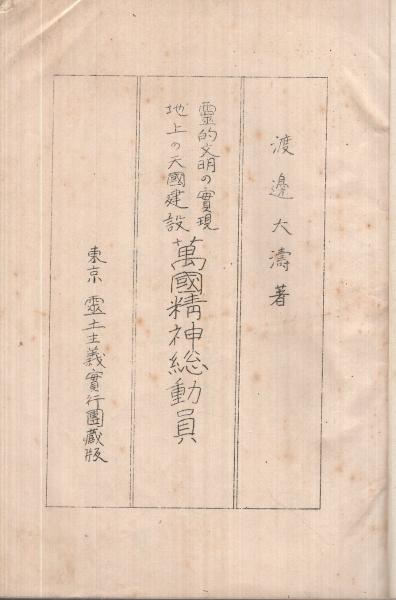 渡邊大濤著
靈的文明の實現
地上の天國建設
萬國精神総動員
東京 靈土主義實行團藏版